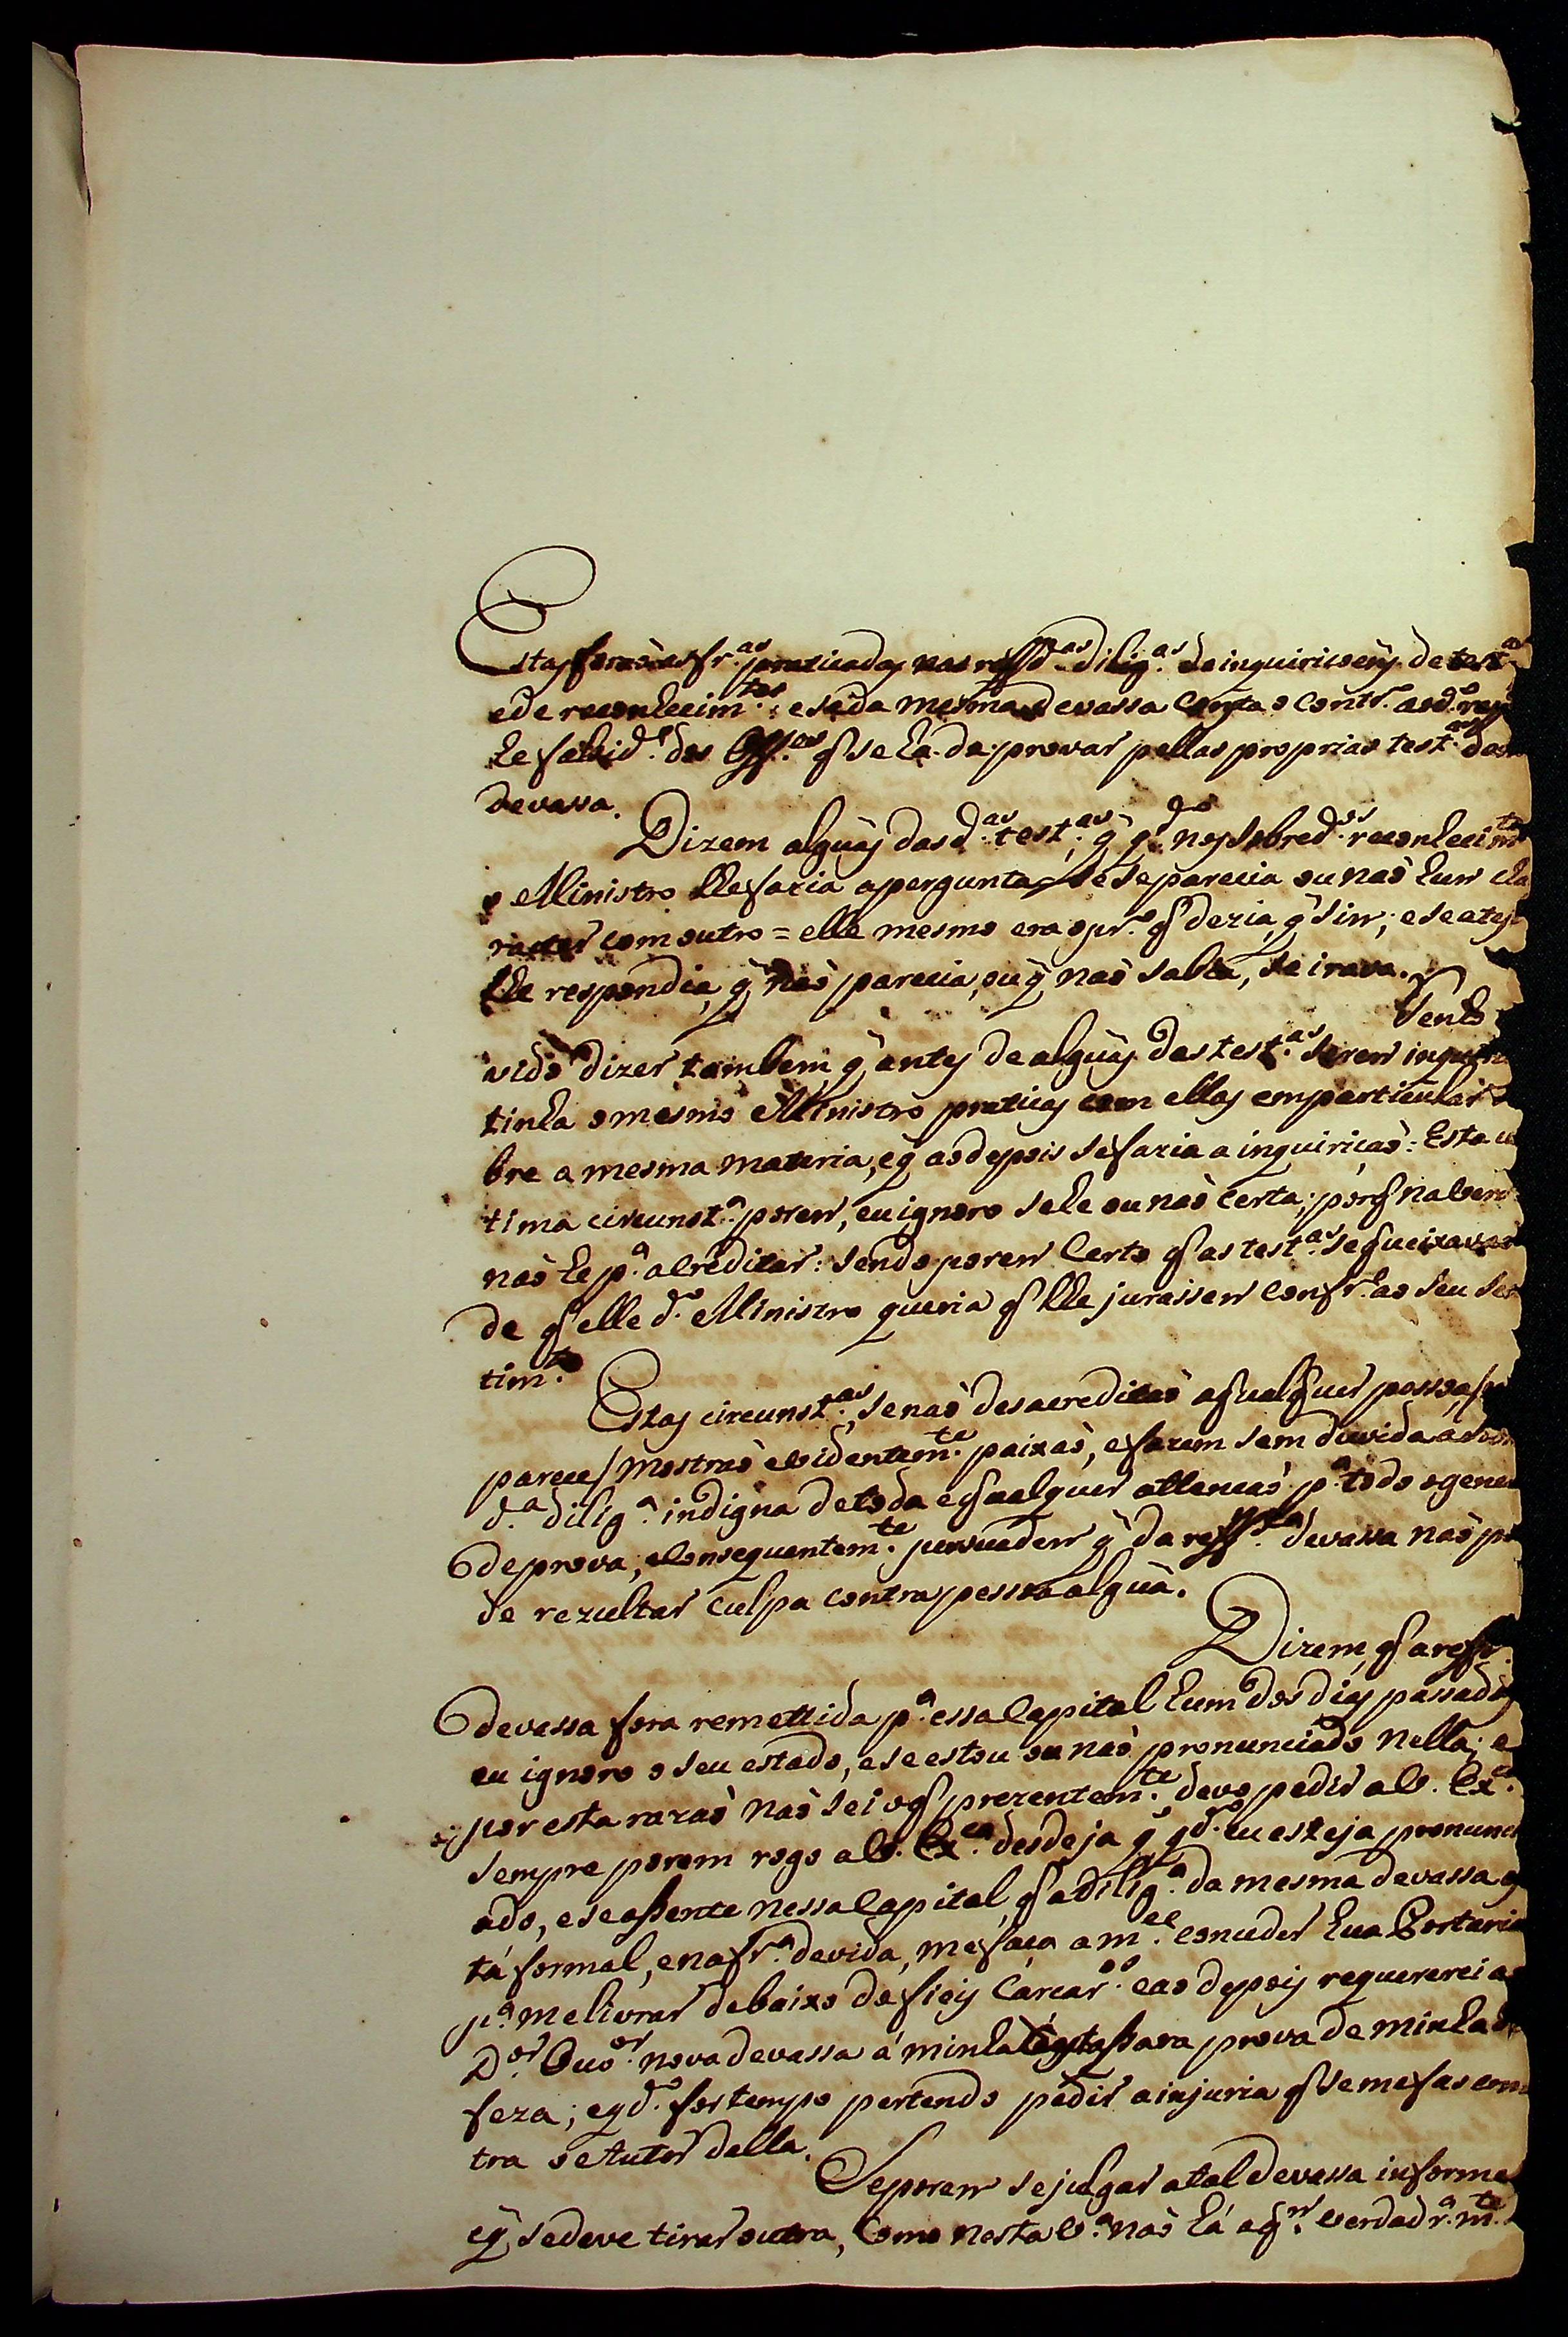 Estas foraõ as fr.as praticadas nas reff.das dilig.as de inquiriçoẽs de test.as
e de reconhecim.tos; e se da mesma devassa consta o contr.o aos d.os
he falsid.e dos Off.es q̃ se há de provar pellas proprias test.as da
devassa.
Dizem alguãs das d.as test.as, q̃ q.do nos sobred.os reconhecim.tos
o Ministro lhe fazia a pergunta, se se parecia ou naõ hum cha
racter com outro = elle mesmo era o pr.o q̃ dezia, q̃ sim; e se a test.
lhe respondia, q̃ naõ parecia, ou q̃ naõ sabia, se irava.
Tenho
ouvido dizer tambem, q̃ antes de alguãs das test.as serem inquiri
tinha o mesmo Ministro praticas com ellas em particular so
bre a mesma materia, e q̃ ao depois se fazia a inquiriçaõ: Esta ul
tima circunst.a porem, eu ignoro se he ou naõ certa; porq̃ na verd.
naõ he p.a acreditar: sendo porem certo q̃ as test.as se queixavaõ
de q̃ elle d.o Ministro queria q̃ lhe jurassem conf.e ao seu sen
tim.to
Estas circunst.as, se naõ desacreditaõ a qualquer pessoa, /
parece/ mostraõ evidentem.te paixaõ, e fazem sem duvida a sobre
d.a dilig.a indigna de toda e qualquer attençaõ p.a todo o genero
de prova, e consequentem.te persuadem q̃ da reff.da devassa naõ po
de rezultar culpa contra pessoa alguã.
Dizem, q̃ a reff.
devassa fora remettida p.a essa Capital hum dos dias passados
eu ignoro o seu estado, e se estou ou naõ pronunciado nella; e
por esta razaõ naõ sei o q̃ prezentem.te devo pedir a V. Ex.ca
sempre porem rogo a V. Ex.ca desde ja q̃ q.do eu esteja pronunci
ado, e se assente nessa Capital, q̃ a dilig.a da mesma devassa es
tá formal, e na fr.a devida, me faça a m.ce conceder hua Portaria
p.a me livrar debaixo de fieis Carcer.os e ao depois requererei ao
D.or Ouv.or nova devassa á minha custa para prova de minha de
feza; e q.do for tempo pertendo pedir a injuria q̃ se me fas con
tra o Autor della.
Se porem se julgar a tal devassa informe
e q̃ se deve tirar outra, como nesta V.a naõ há a q.m verdadr.am.te